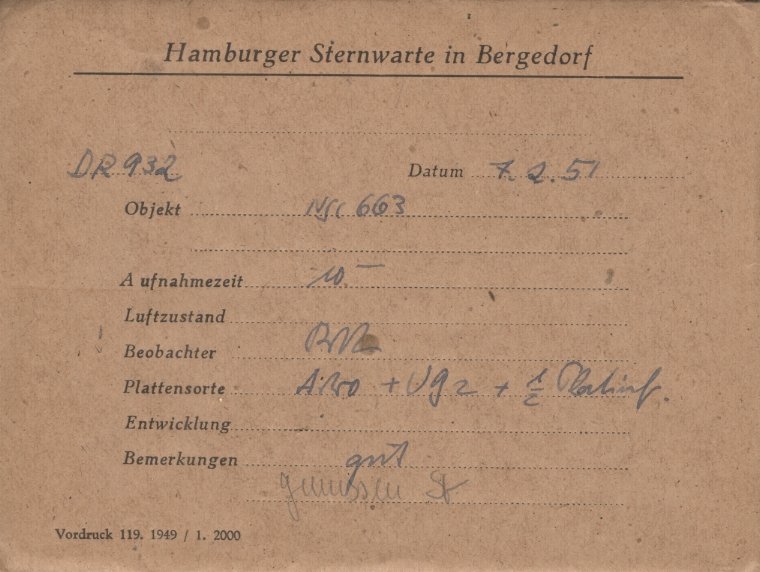 Hamburger Sternwarte in Bergedorf
DR 932 Datum 7. 2. 51
Objekt NGC 663
Aufnahmezeit 10.—
Luftzustand
Beobachter
Plattensorte + UG2 + 1/2
Entwicklung
Bemerkungen gut
gemessen
Vordruck 119. 1949 / 1. 2000